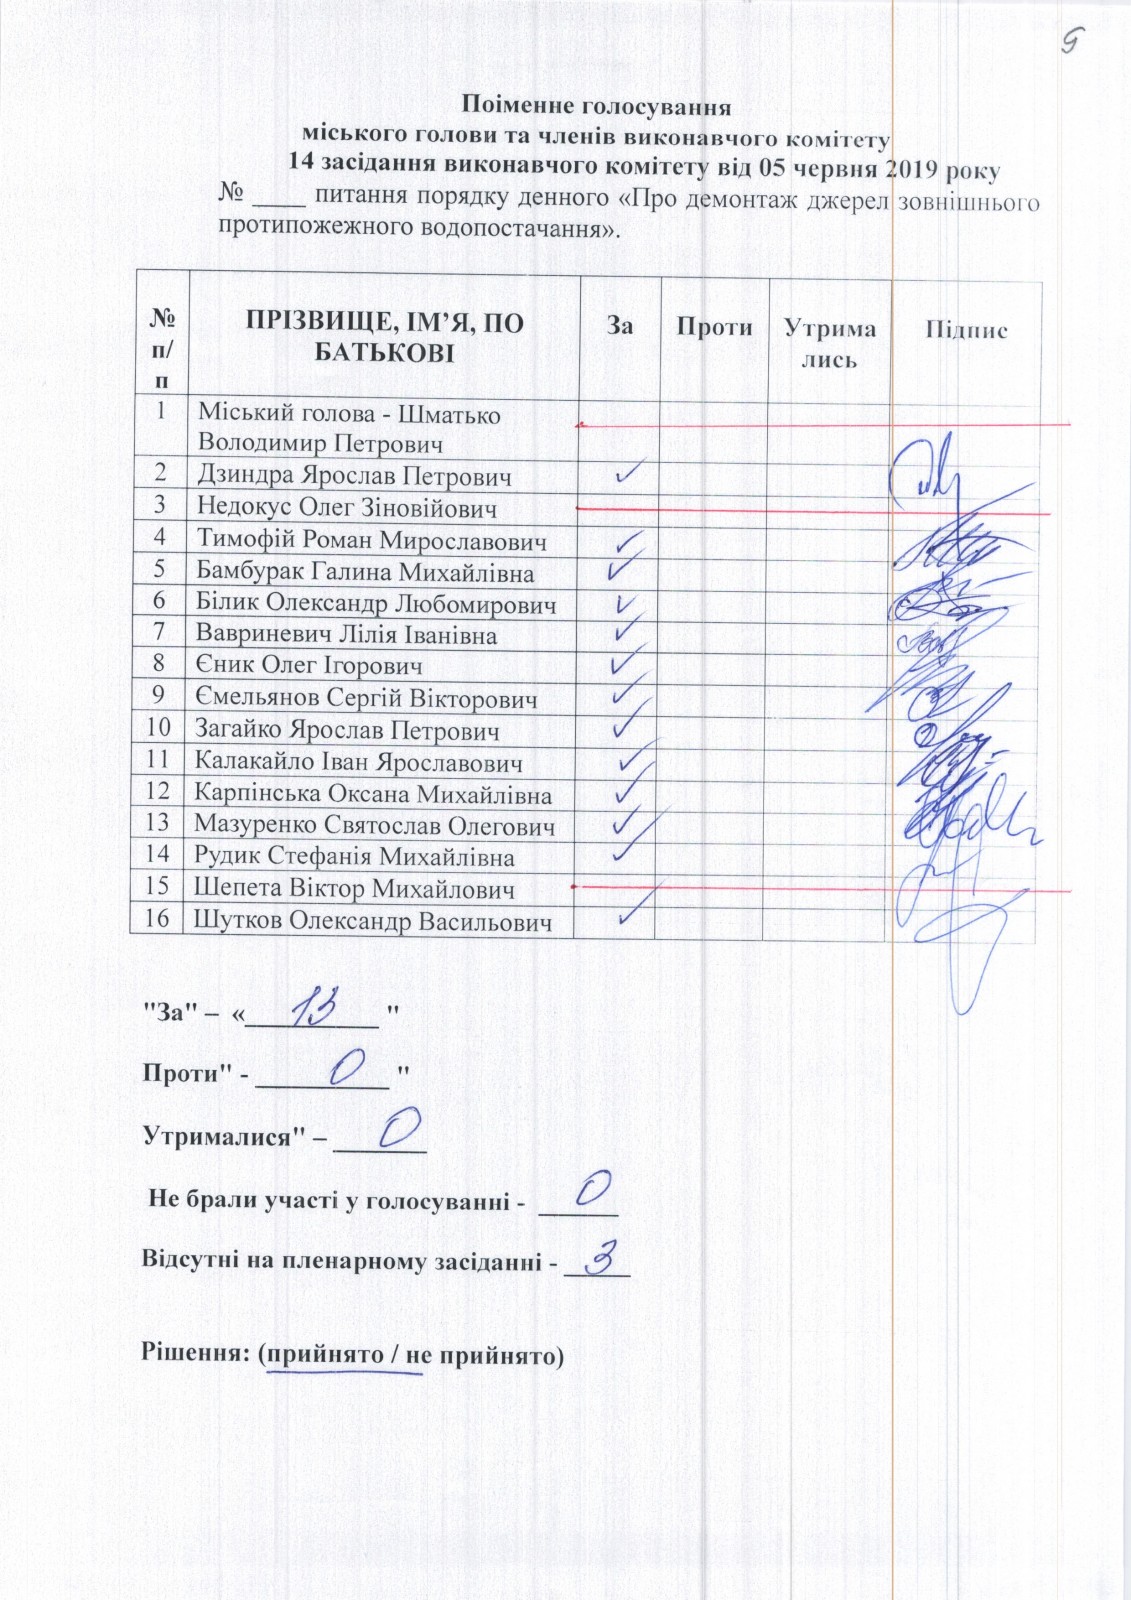 9
Поіменне голосування
міського голови та членів виконавчого комітету
14 засідання виконавчого комітету від 05 червня 2019 року
№ ____ питання порядку денного «Про демонтаж джерел зовнішнього
протипожежного водопостачання».
№ п/п ПРІЗВИЩЕ, ІМ’Я, ПО БАТЬКОВІ За Проти Утрима лись Підпис
1 Міський голова - Шматько
Володимир Петрович
2 Дзиндра Ярослав Петрович ✓
3 Недокус Олег Зіновійович
4 Тимофій Роман Мирославович ✓
5 Бамбурак Галина Михайлівна ✓
6 Білик Олександр Любомирович ✓
7 Вавриневич Лілія Іванівна ✓
8 Єник Олег Ігорович ✓
9 Ємельянов Сергій Вікторович ✓
10 Загайко Ярослав Петрович ✓
11 Калакайло Іван Ярославович ✓
12 Карпінська Оксана Михайлівна ✓
13 Мазуренко Святослав Олегович ✓
14 Рудик Стефанія Михайлівна ✓
15 Шепета Віктор Михайлович
16 Шутков Олександр Васильович ✓
"За" – « 13 "
Проти" - 0 "
Утрималися" – 0
Не брали участі у голосуванні - 0
Відсутні на пленарному засіданні - 3
Рішення: (прийнято / не прийнято)